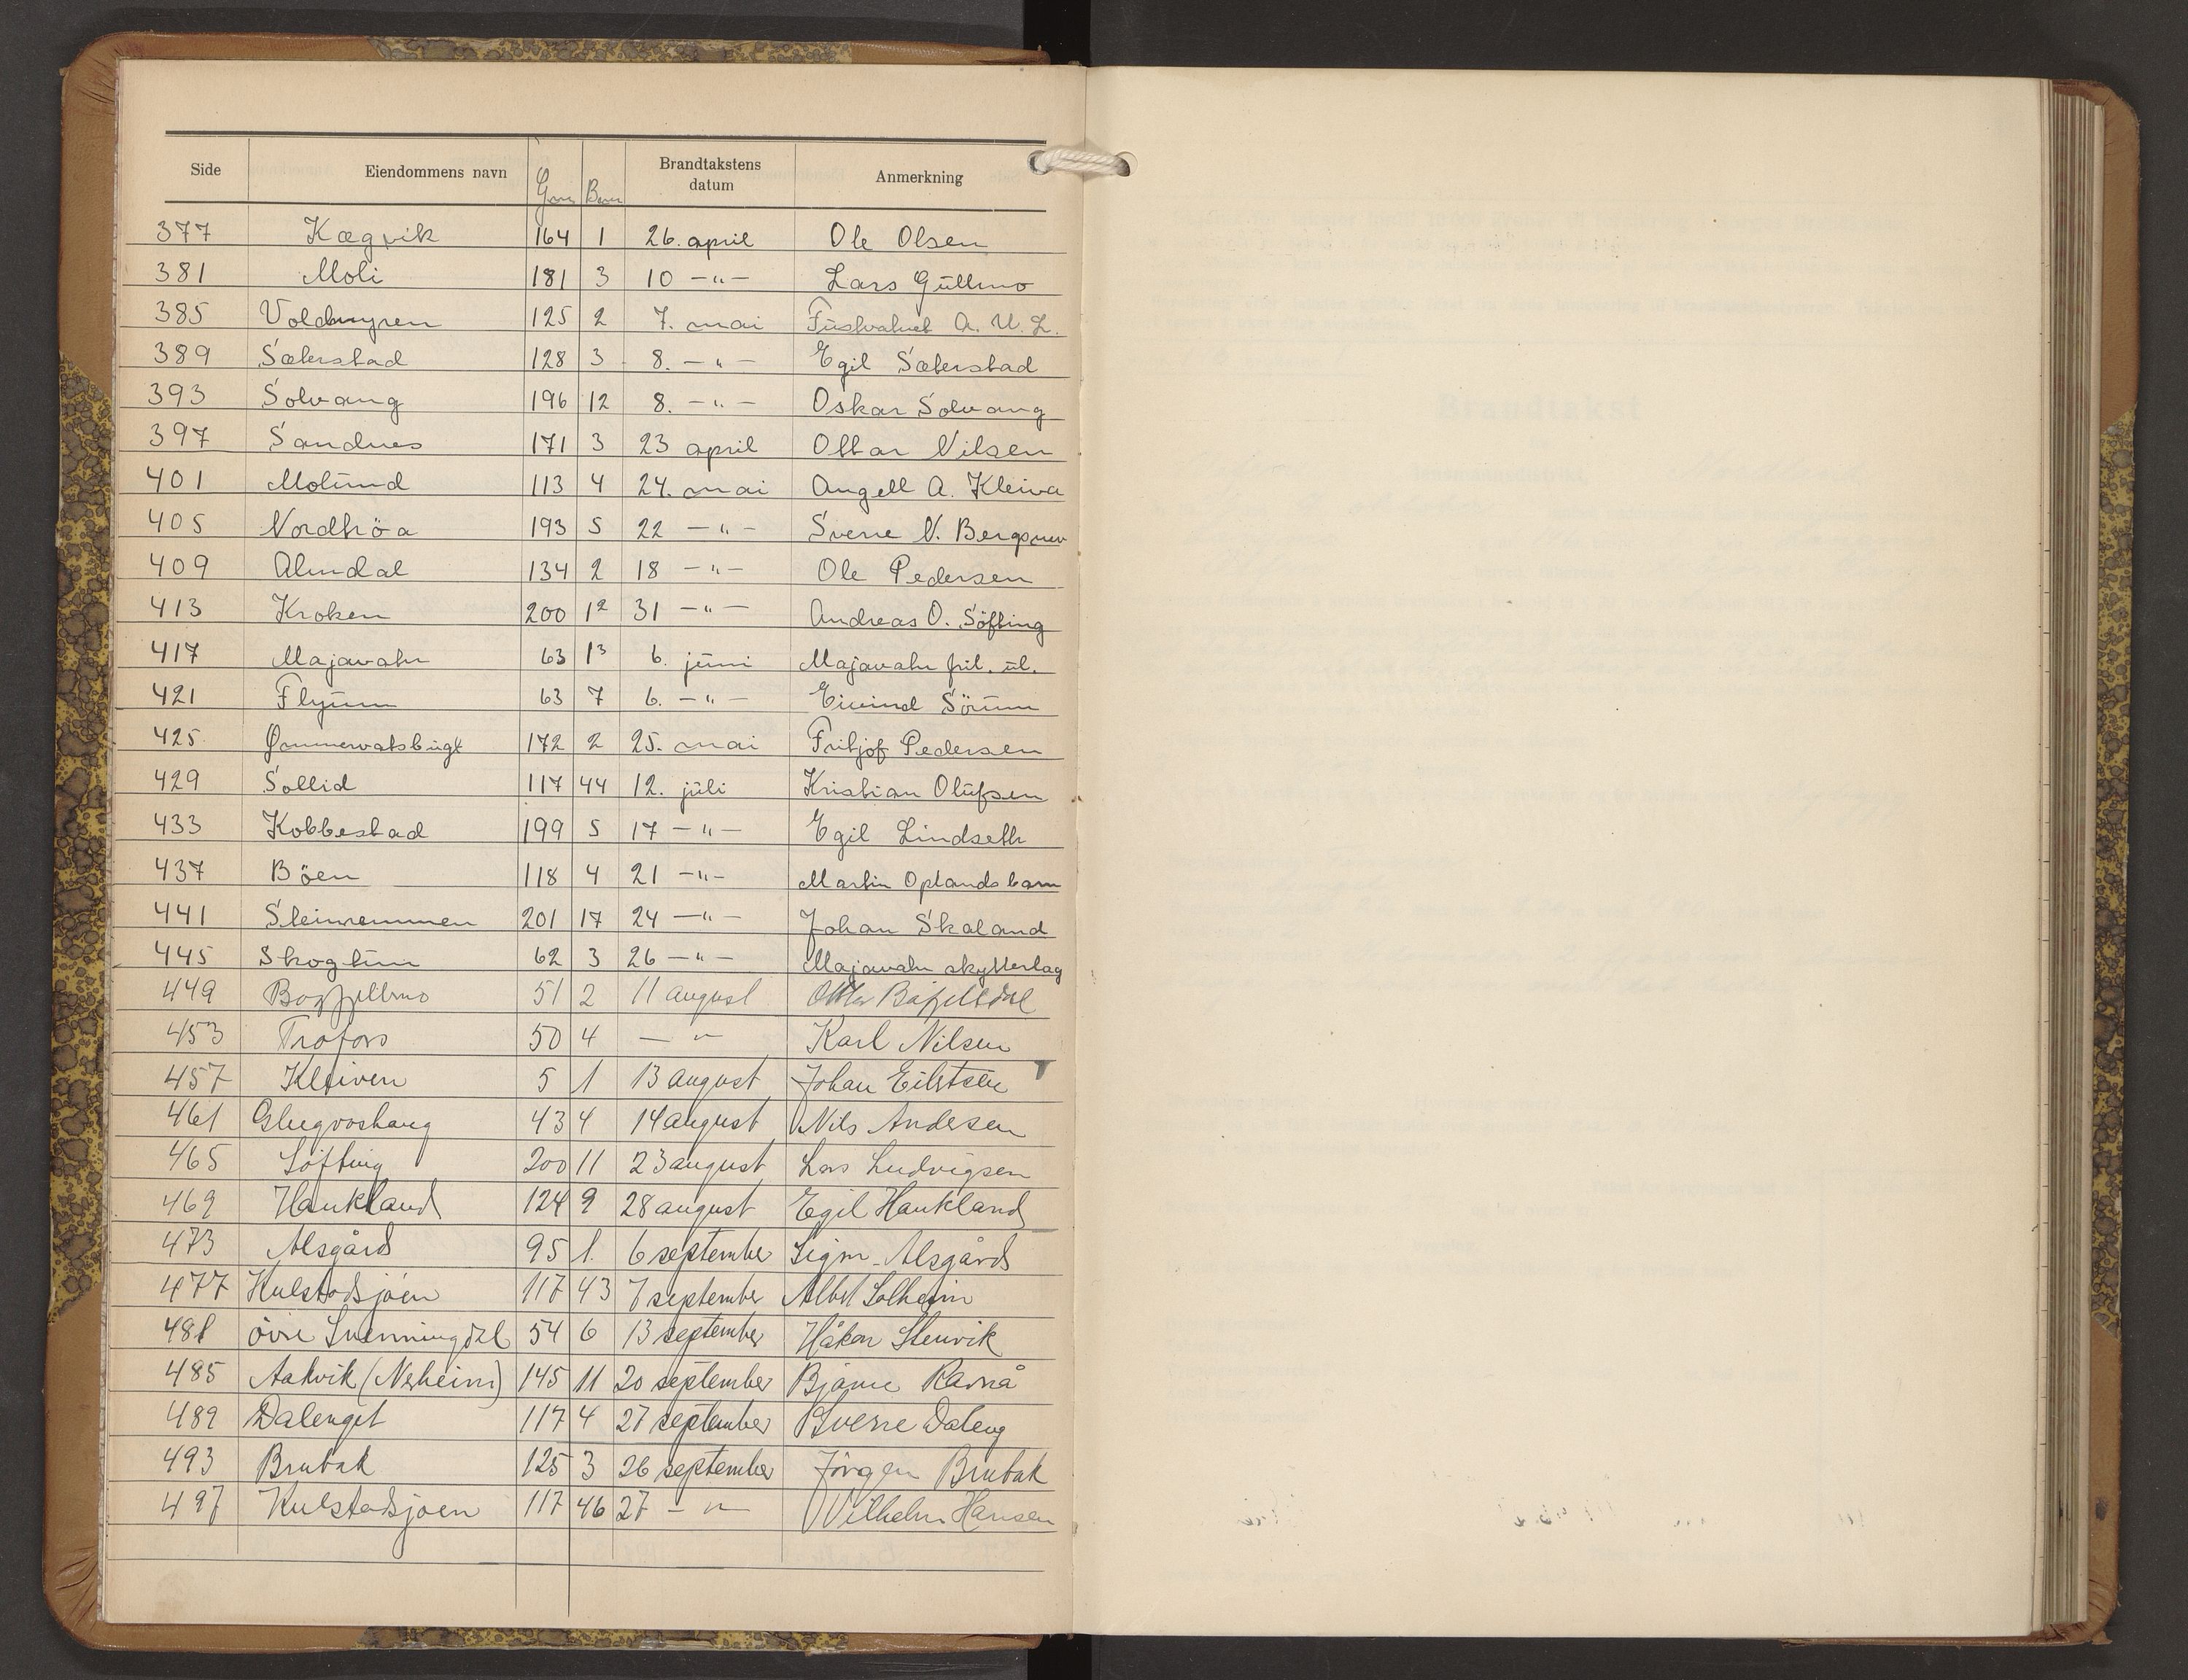 Side Eiendommens navn Gnr Bnr Brandtakstens datum Anmerkning
377 Kægvik 164 1 26. april Ole Olsen
381 Moli 181 3 10 —„— Lars Gullmo
385 Voldmyren 125 2 7. mai Fustvatnet A. U. L.
389 Sæterstad 128 3 8. —„— Egil Sæterstad
393 Solvang 196 12 8. —„— Oskar Solvang
397 Sandnes 171 3 23 april Ottar Nilsen
401 Molund 113 4 24. mai Angell A. Kleiva
405 Nordhöa 193 5 22 —„— Sverre N. Bergsnev
409 Almdal 134 2 18 —„— Ole Pedersen
413 Kroken 200 12 31 —„— Andreas O. Söfting
417 Majavatn 63 13 6. juni Majavatn fril. ul.
421 Flyum 63 7 6. —„ Eivind Sörum
425 Ømmervatsbugt 172 2 25. mai Fritjof Pedersen
429 Sollid 117 44 12. juli Kristian Olufsen
433 Kobbestad 199 5 17 —„— Egil Lindseth
437 Böen 118 4 21 —„— Martin Oplandsbarn
441 Steinremmen 201 17 24 —„— Johan Skaland
445 Skoglun 62 3 26 —„— Majavatn skytterlag
449 51 2 11 august
453 Trofors 50 4 — „ Karl Nilsen
457 Kleiven 5 1 13 august Johan Eilertsen
461 43 4 14 august Nils Andersen
465 Söfting 200 11 23 august Lars Ludvigsen
469 Haukland 124 9 28 august Egil Haukland
473 Alsgård 95 1. 6 september Sigm. Alsgård
477 Kulstadsjöen 117 43 7 september Albert Solheim
481 övre Svenningdal 54 6 13 september Håkon Stenvik
485 Aakvik (Nesheim) 145 11 20 september Bjarne Ravnå
489 Dalenget 117 4 27 september Sverre Daleng
493 Brubak 125 3 26 september Jörgen Brubak
497 Kulstadsjøen 117 46 27 — „— Vilhelm Hansen